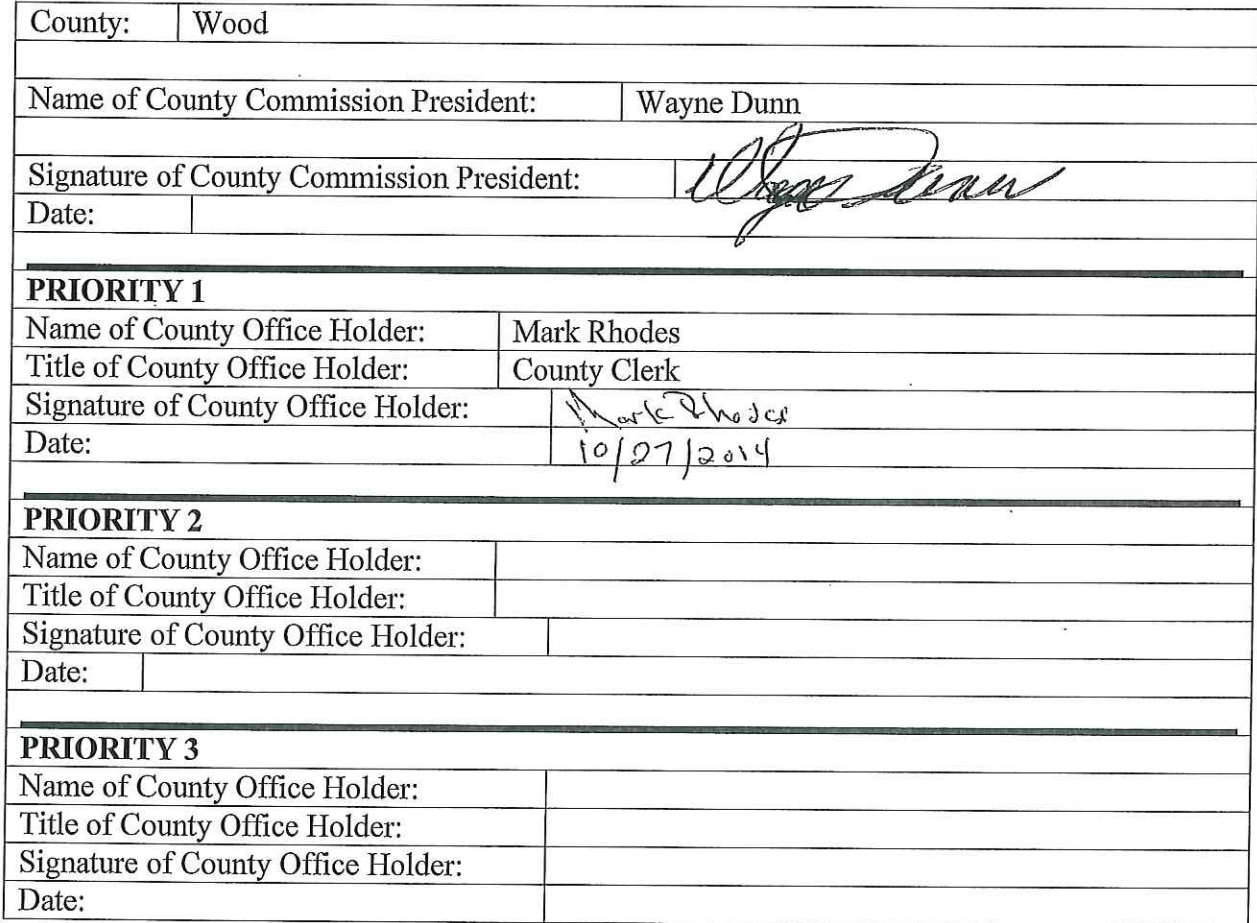 County: Wood
Name of County Commission President: Wayne Dunn
Signature of County Commission President: Wayne Dunn
Date:
PRIORITY 1
Name of County Office Holder: Mark Rhodes
Title of County Office Holder: County Clerk
Signature of County Office Holder: Mark Rhodes
Date: 10/27/2014
PRIORITY 2
Name of County Office Holder:
Title of County Office Holder:
Signature of County Office Holder:
Date:
PRIORITY 3
Name of County Office Holder:
Title of County Office Holder:
Signature of County Office Holder:
Date: